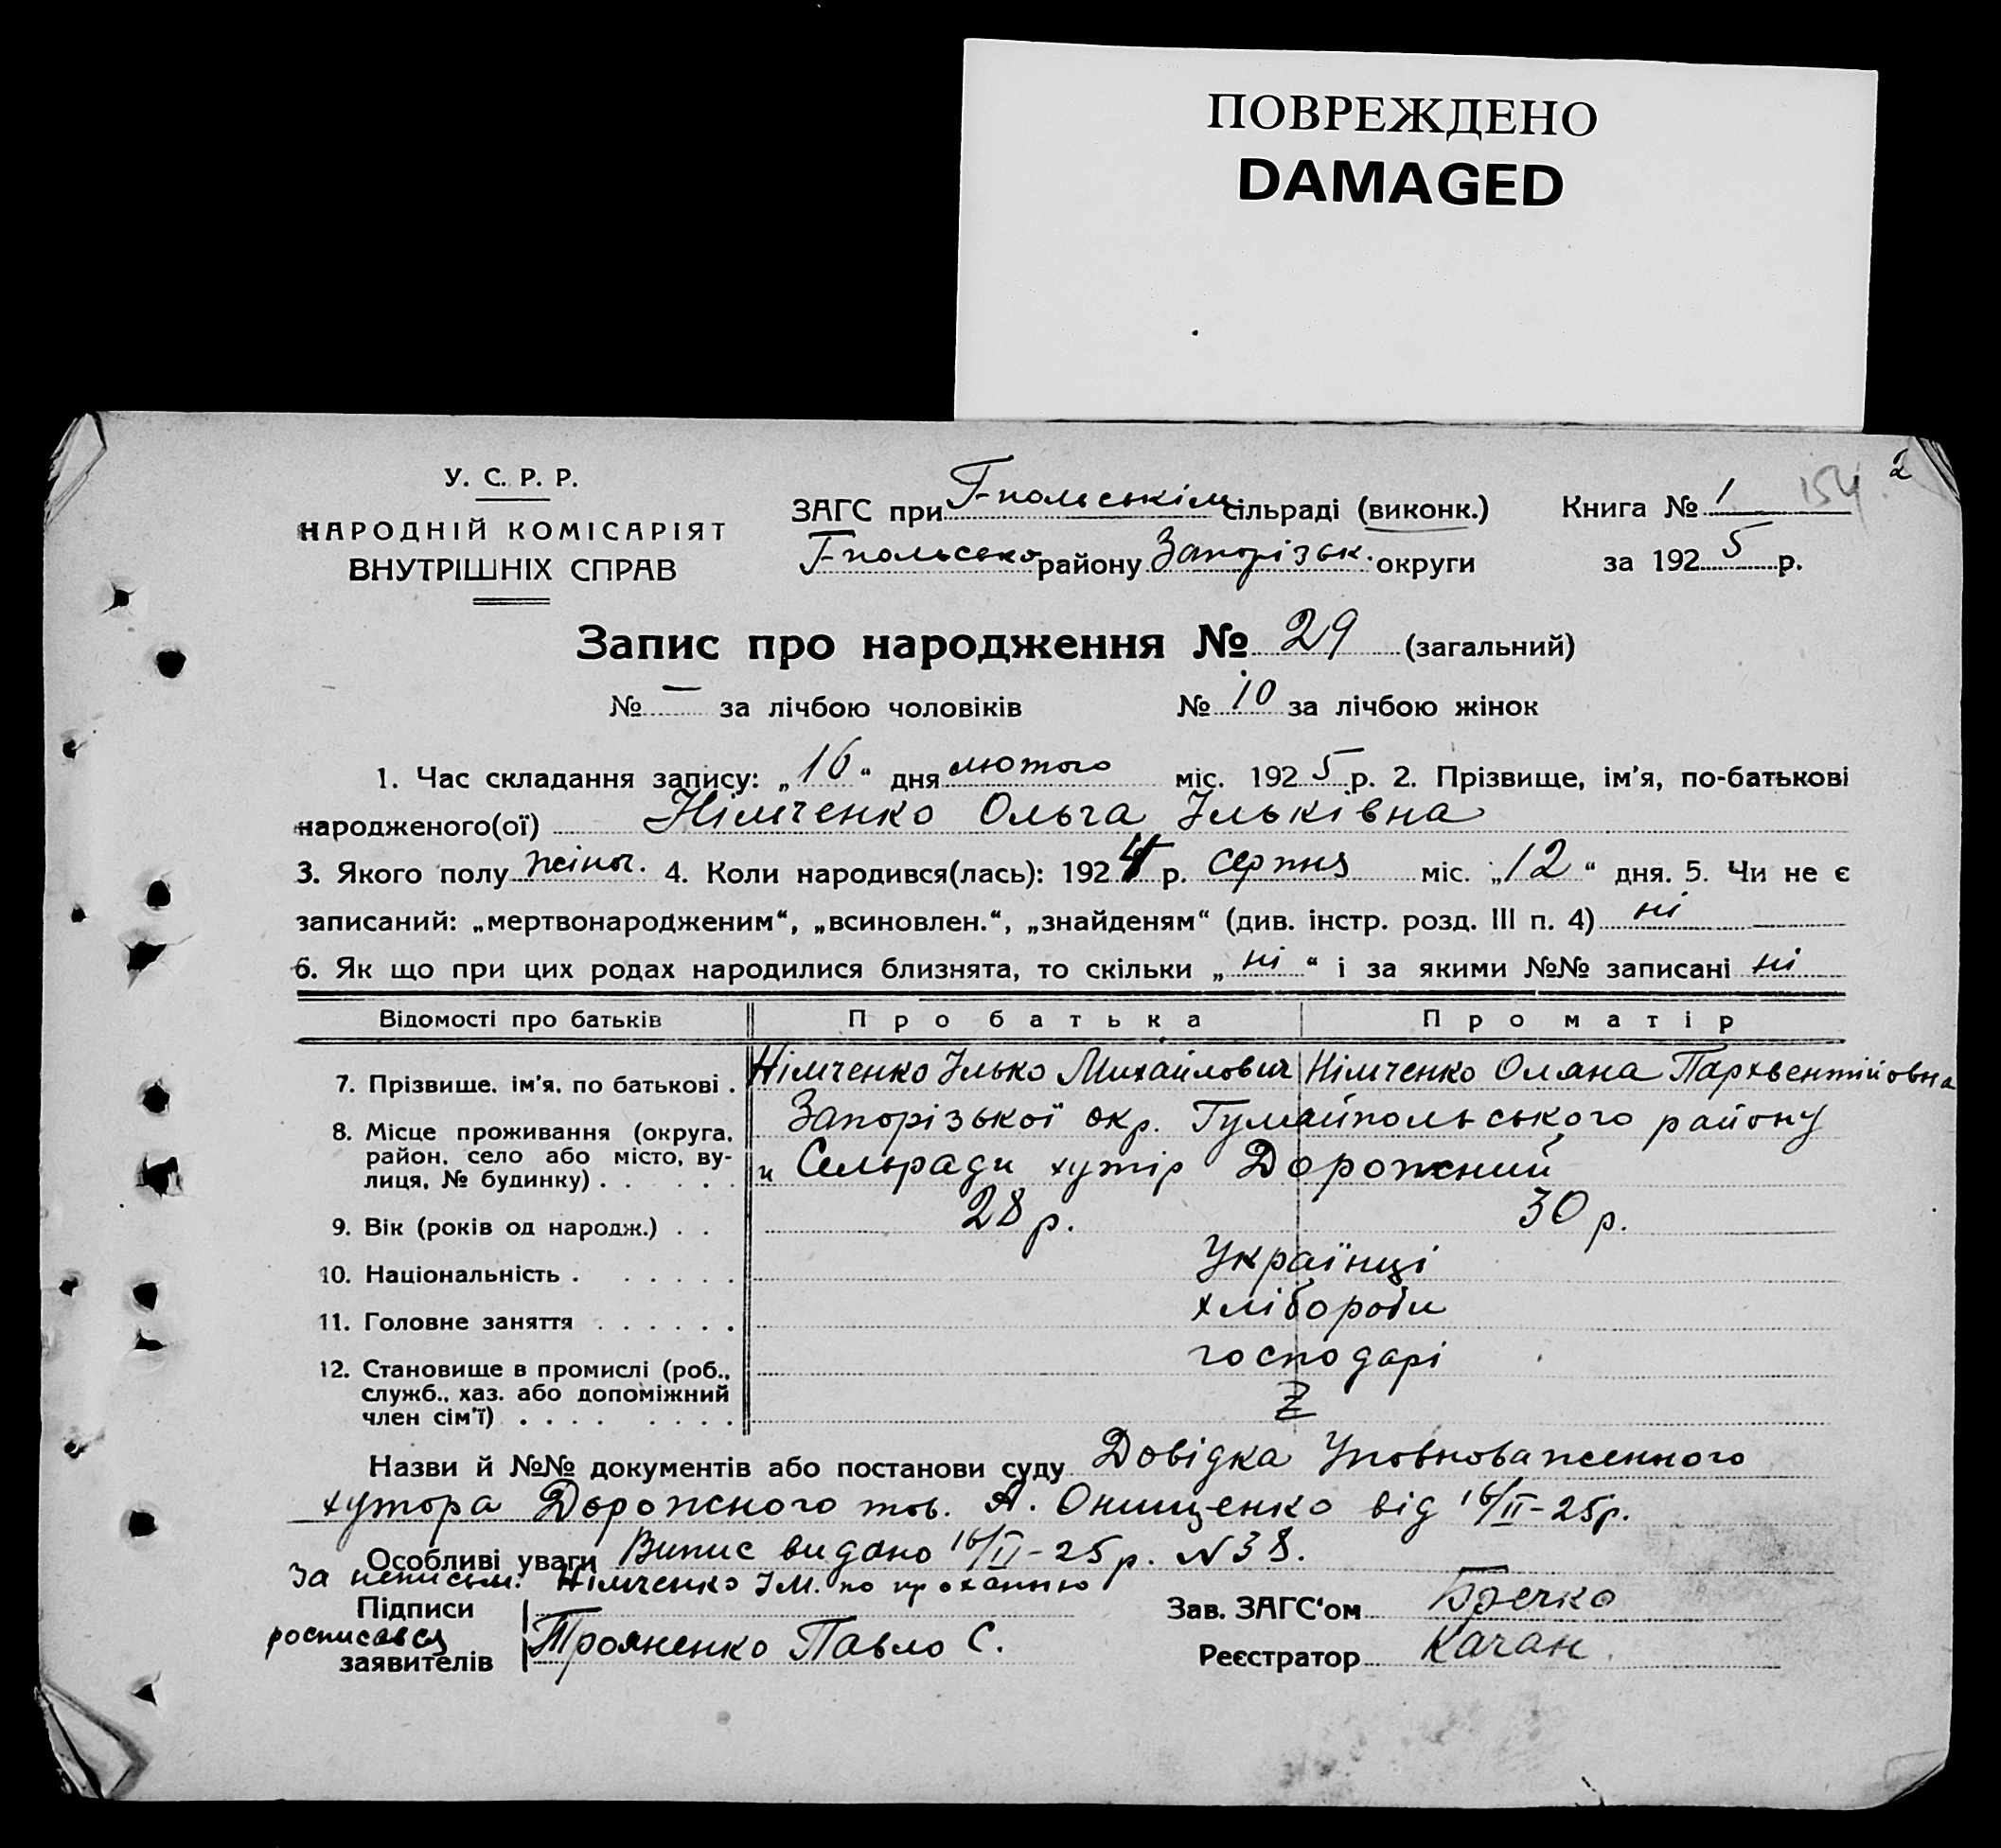 ПОВРЕЖДЕНО
DAMAGED
2
У. С. Р. Р.
НАРОДНІЙ КОМІСАРІЯТ
ВНУТРІШНІХ СПРАВ
ЗАГС при Г-польськім сільраді (виконк.)
Г-польсько району Запорізьк. округи
Книга № 1 154
за 1925 р.
Запис про народження № 29 (загальний)
№ — за лічбою чоловіків № 10 за лічбою жінок
1. Час складання запису: „16“ дня лютого міс. 1925 р. 2. Прізвище, ім’я, по-батькові
народженого(ої) Німченко Ольга Ільківна
3. Якого полу жіноч. 4. Коли народився(лась): 1924 р. серпня міс. „12“ дня. 5. Чи не є
записаний: „мертвонародженим“, „всиновлен.“, „знайденям“ (див. інстр. розд. III п. 4) ні
6. Як що при цих родах народилися близнята, то скільки „ні“ і за якими №№ записані ні
Відомості про батьків Про батька Про матір
7. Прізвище, ім’я, по батькові . Німченко Ілько Михайлович Німченко Оляна Пархвентійовна
8. Місце проживання (округа, район, село або місто, вулиця, № будинку) . Запорізької окр. Гумайпольського району
и Сельради хутір Дорожний
9. Вік (років од народж.) . . 28 р. 30 р.
10. Національність . Українці
11. Головне заняття . хлібороби
12. Становище в промислі (роб., служб., хаз. або допоміжний член сім’ї) . господарі
Z
Назви й №№ документів або постанови суду Довідка Уповноваженного
хутора Дорожного тов. А. Онищенко від 16/II-25р.
Особливі уваги Випис видано 16/II-25 р. N 38.
За неписьм. Німченко І.М. по проханню
Підписи
росписався
заявителів Трояненко Павло С.
Зав. ЗАГС‘ом Бречко
Реєстратор Качан